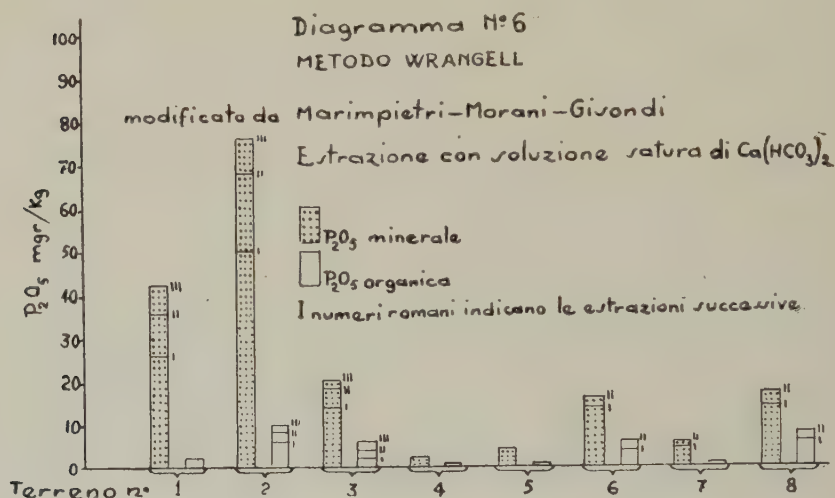 Diagramma Nº 6
METODO WRANGELL
modificato da Marimpietri-Morani-Gisondi
Estrazione con soluzione satura di Ca(HCO3)2
P2O5 minerale
P2O5 organica
I numeri romani indicano le estrazioni successive
P2O5 mgr/Kg
100
90
80
70
60
50
40
30
20
10
0
III
II
I
III
II
I
III
II
I
III
II
I
III
II
I
II
I
II
I
II
I
II
I
II
I
Terreno nº 1 2 3 4 5 6 7 8